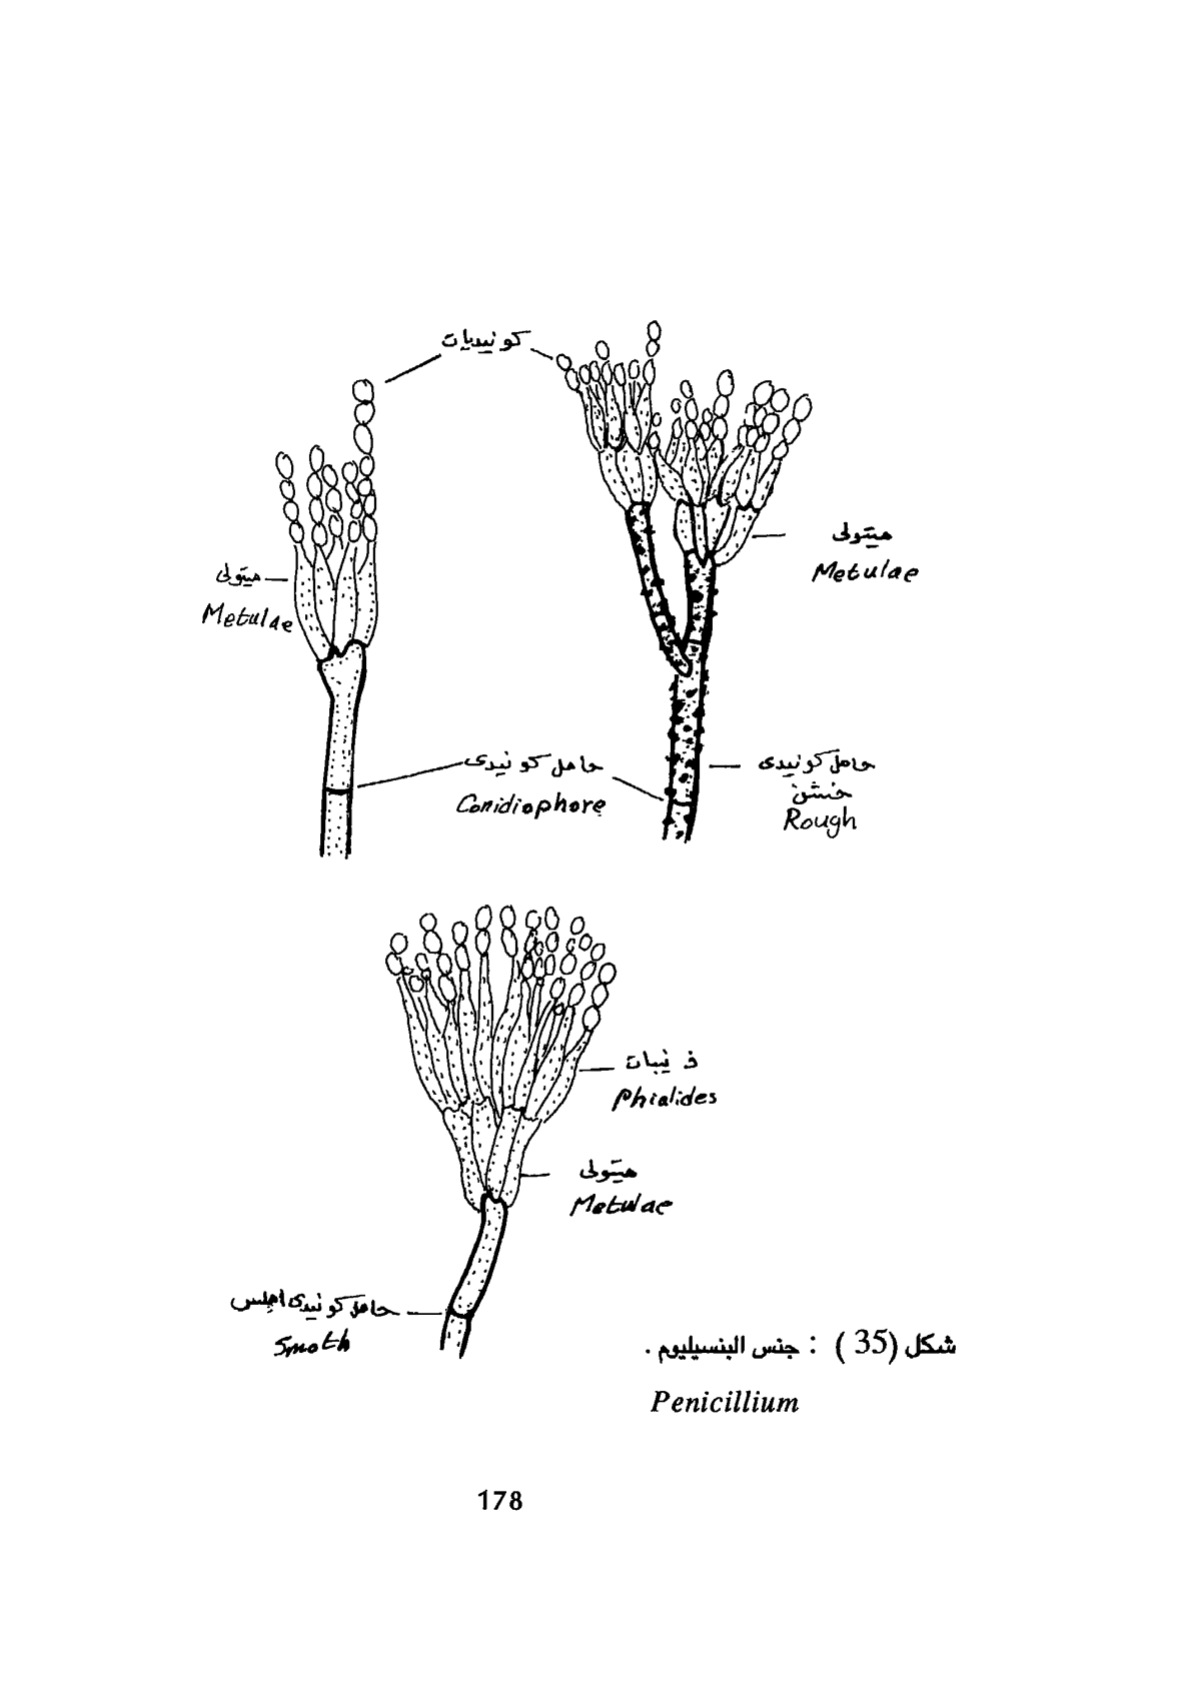 كونيديات
ميتولى
Metulae
ميتولى
Metulae
حامل كونيدى
Conidiophore
حامل كونيدى
خشن
Rough
ذنيبات
Phialides
ميتولى
Metulae
حامل كونيدى املس
Smoth
شكل (35) : جنس البنسيليوم .
Penicillium
178